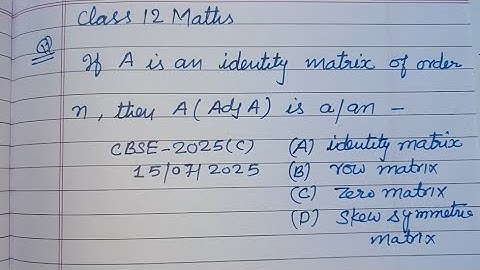 Class 12 Maths
Q If A is an identity matrix of order
n, then A(Adj A) is a/an -
CBSE-2025(C) (A) identity matrix
15/07/2025 (B) row matrix
(C) zero matrix
(D) skew symmetric
matrix